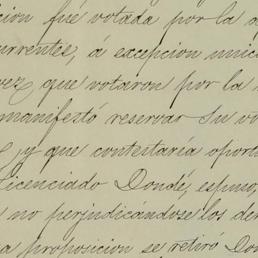 cion fué votada por la a
urrentes, á excepcion unic
vez, que votaron por la
manifestó reservar su vo
y que contestaría oport
licenciado Dondé, espuso,
no perjudicándose los der
a proposicion se retiró Don